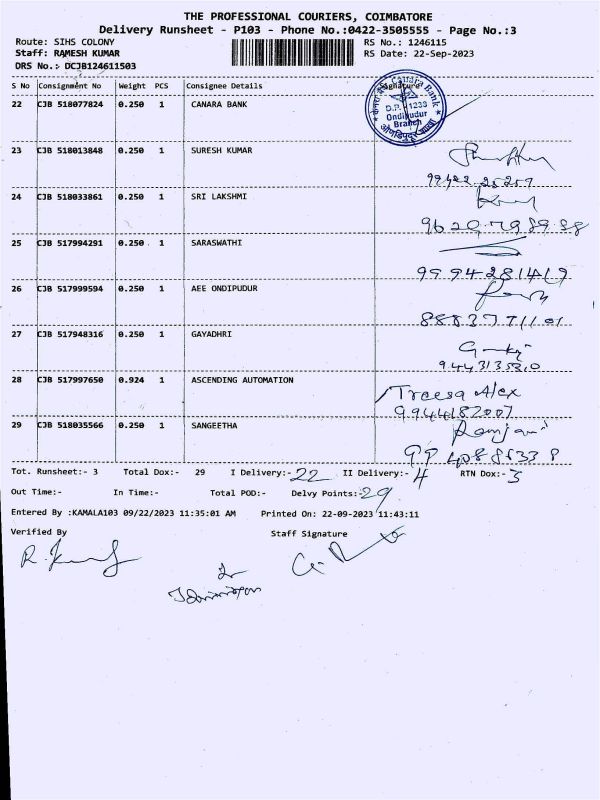 THE PROFESSIONAL COURIERS, COIMBATORE
Delivery Runsheet - P103 - Phone No.:0422-3505555 - Page No.:3
Route: SIHS COLONY RS No.: 1246115
Staff: RAMESH KUMAR RS Date: 22-Sep-2023
DRS No.: DCJB124611503
S No Consignment No Weight PCS Consignee Details Signature
22 CJB 518077824 0.250 1 CANARA BANK
Canara Bank
D.P. - 1233
Ondipudur
Branch
23 CJB 518013848 0.250 1 SURESH KUMAR
99422 25257
24 CJB 518033861 0.250 1 SRI LAKSHMI
9629798988
25 CJB 517994291 0.250 1 SARASWATHI
9994281419
26 CJB 517999594 0.250 1 AEE ONDIPUDUR
8883771101
27 CJB 517948316 0.250 1 GAYADHRI
9443135310
28 CJB 517997650 0.924 1 ASCENDING AUTOMATION
Treesa Alex
9944182007
29 CJB 518035566 0.250 1 SANGEETHA
Tot. Runsheet:- 3 Total Dox:- 29 I Delivery:- 22 II Delivery:- 4 RTN Dox:- 3
Out Time:- In Time:- Total POD:- Delvy Points:- 29
Entered By :KAMALA103 09/22/2023 11:35:01 AM Printed On: 22-09-2023 11:43:11
Verified By Staff Signature